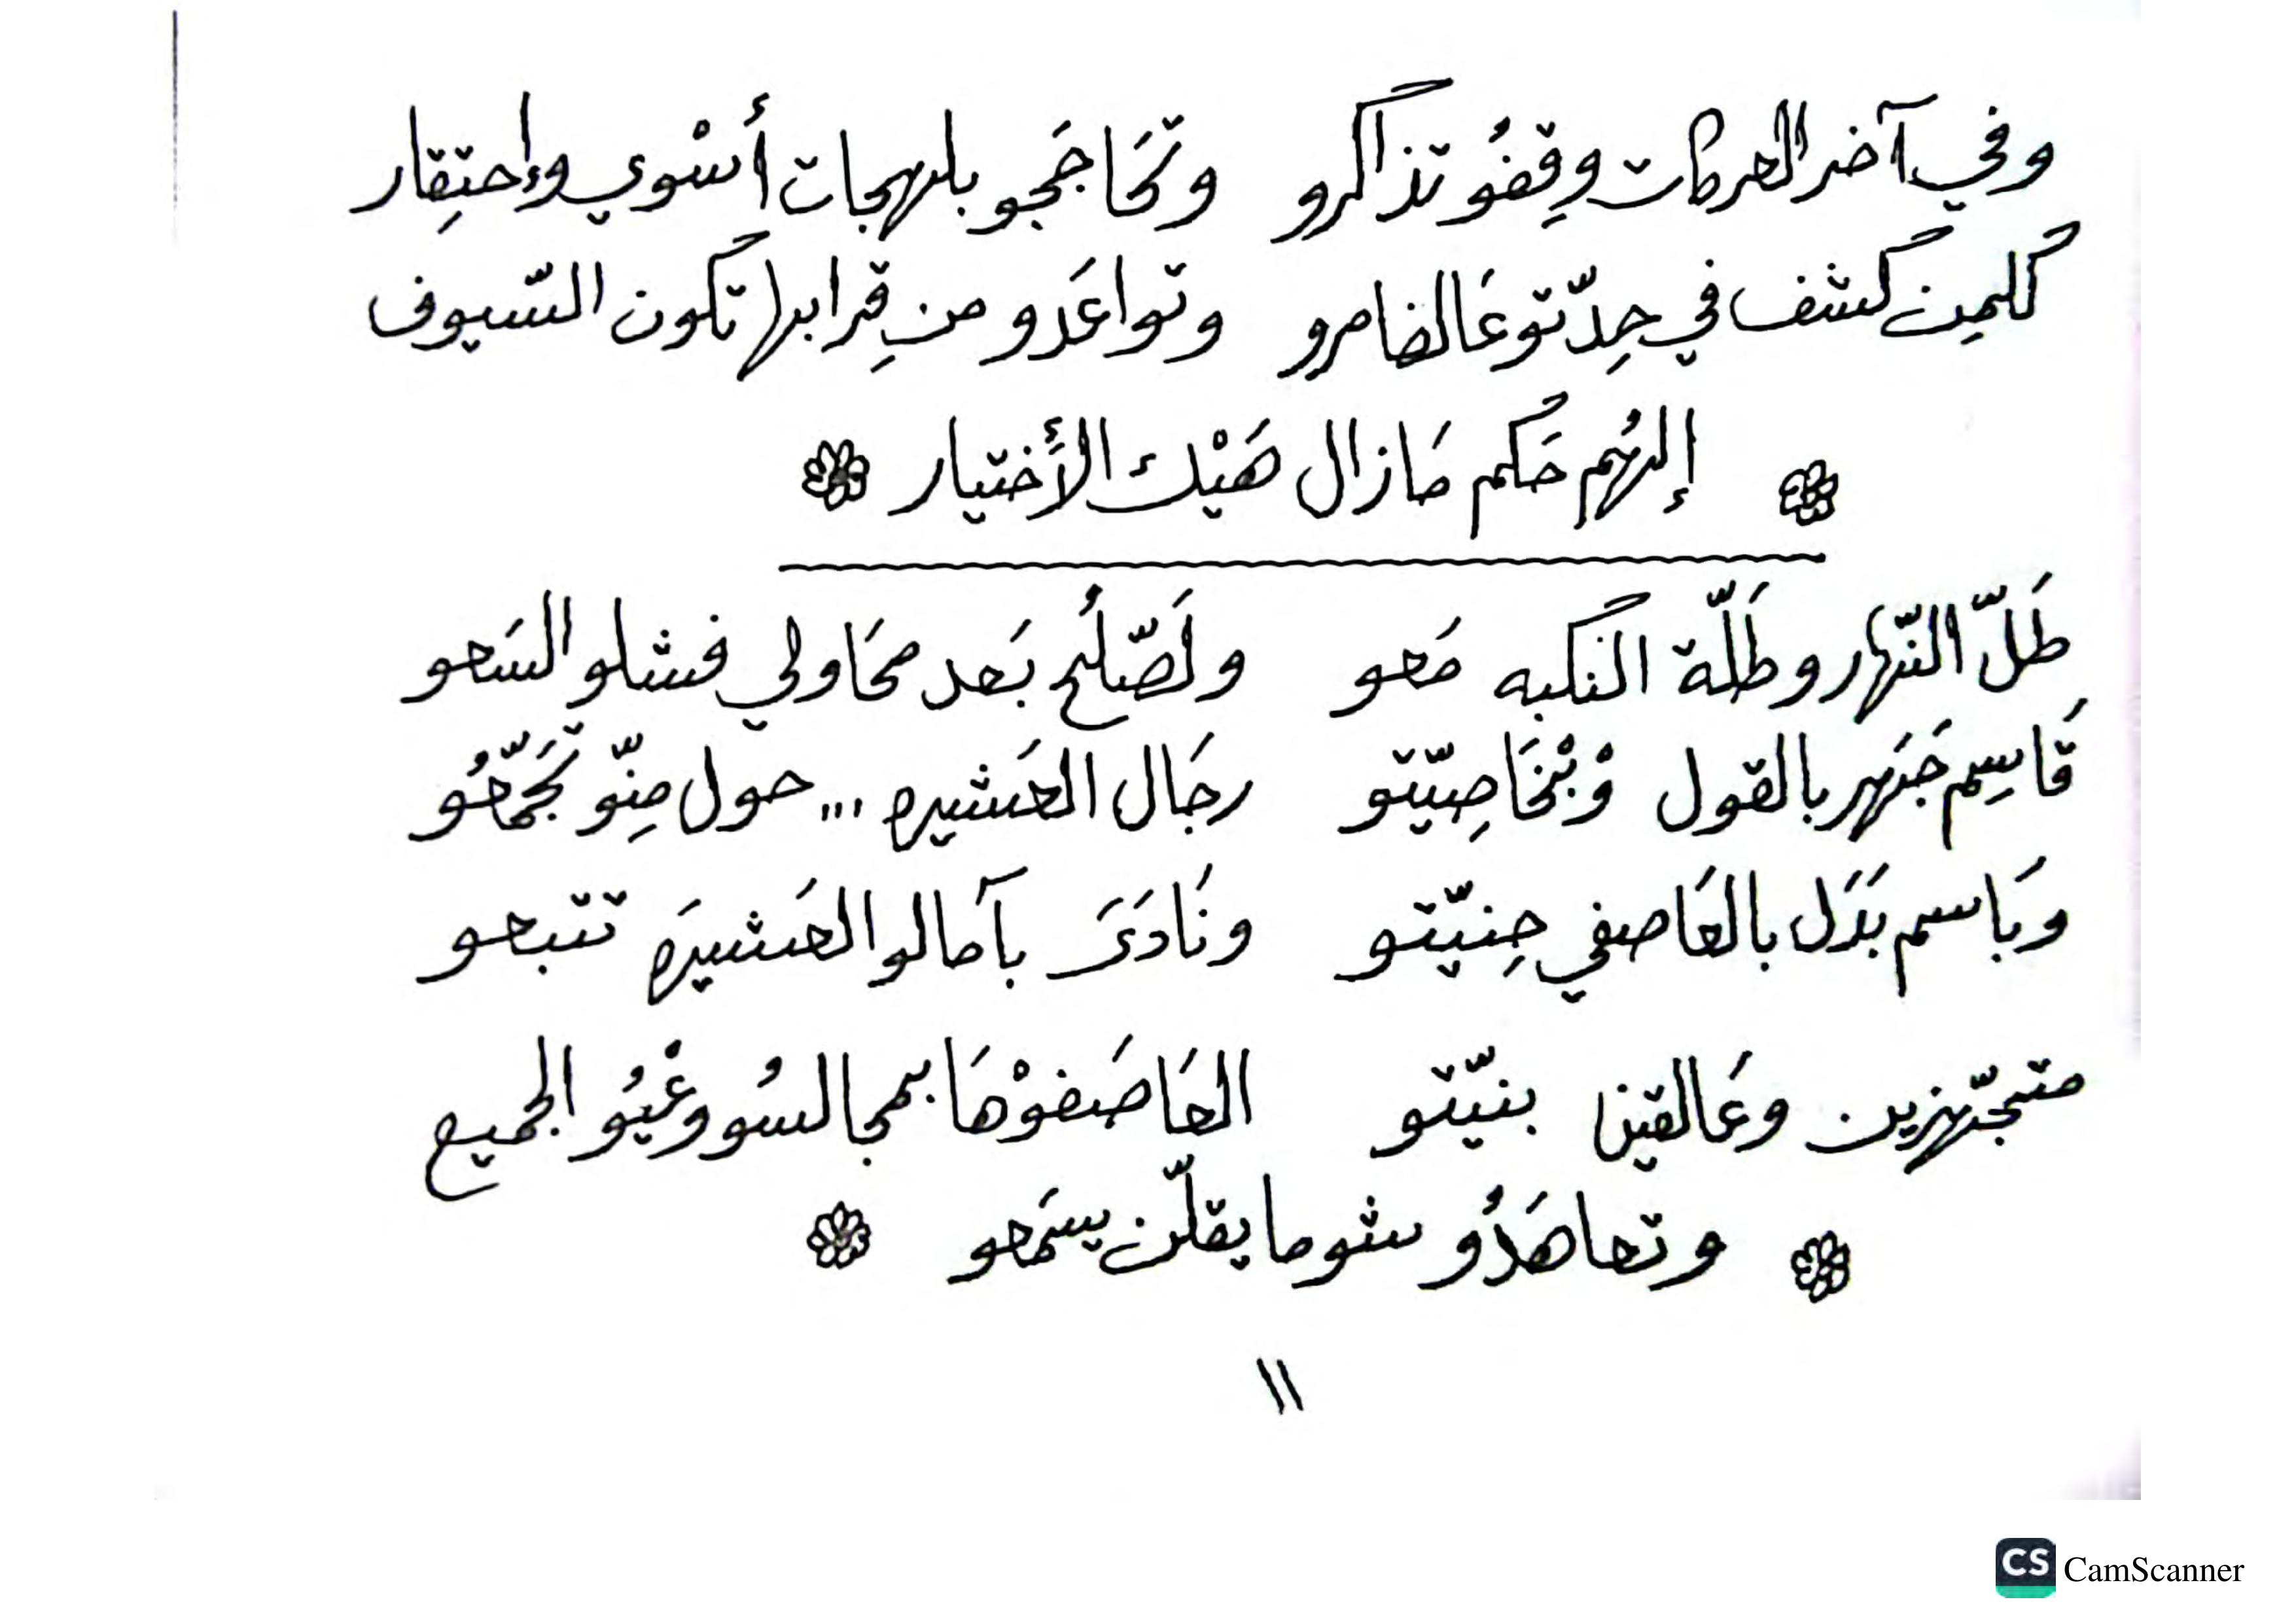 وفي آخر العركات وقِفُو تذاكرو وتحَاجَجو بلهجات أسْوي وإحتِقار
كلمِن كشف في حِدّتو عَالضامرو وتواعَدو من قِرابها تكون السّيوف
إلهُم حَكم مَازال هَيْك الأَختيار
طَلّ النّهار وطَلّة النكبه مَعو ولَصّلُح بَعد محَاولي فشلو السَعو
قَاسِم جَهَر بالقول وْبْنخَاصِيّتو رجَال العَشيره ... حول مِنّو تجَمّعُو
وبَاسم بَدَل بالعَاصفي حِنيّتو ونَادَىَ بآمالو العَشيرَه تتبعو
متجَهّزين وعَالقين بنيّتو العَاصَفوْهَا بمجالسُو وغْيُو الجميع
وتعاهَدُو شو ما يقلّن يسمَعو
١١
CS CamScanner